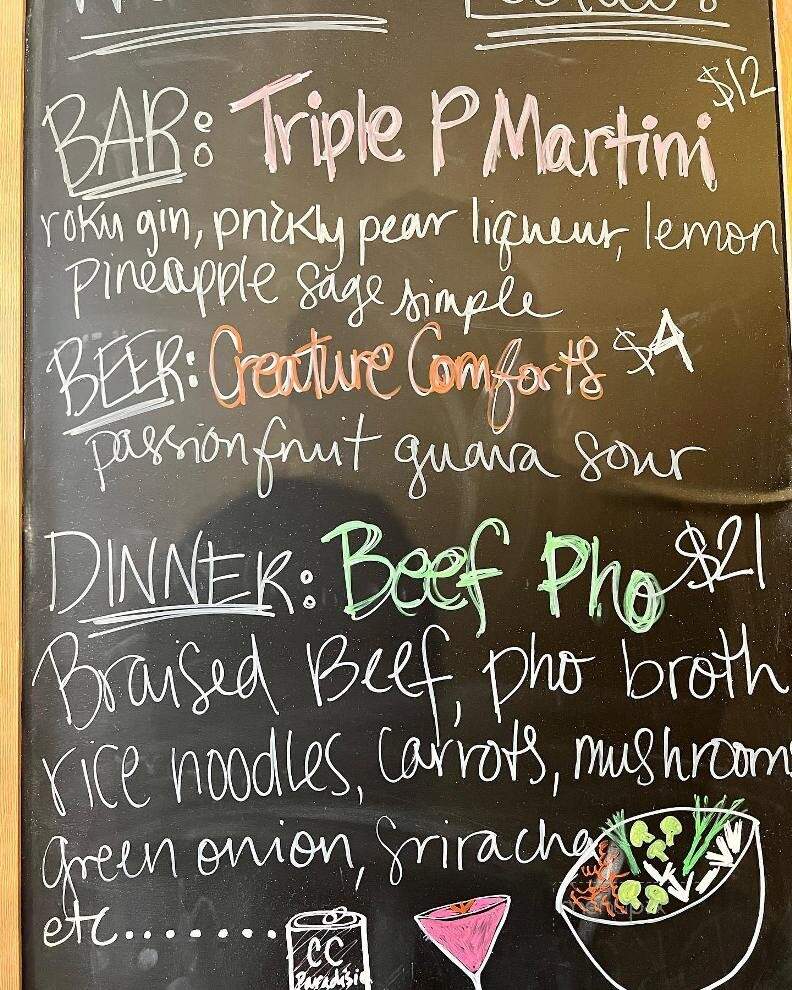 $12
BAR: Triple P Martini
roku gin, prickly pear liqueur, lemon
pineapple sage simple
BEER: Creature Comforts $4
passionfruit guava sour
DINNER: Beef Pho $21
Braised Beef, pho broth
rice noodles, carrots, mushrooms
green onion, sriracha
etc.......
CC
Paradisio